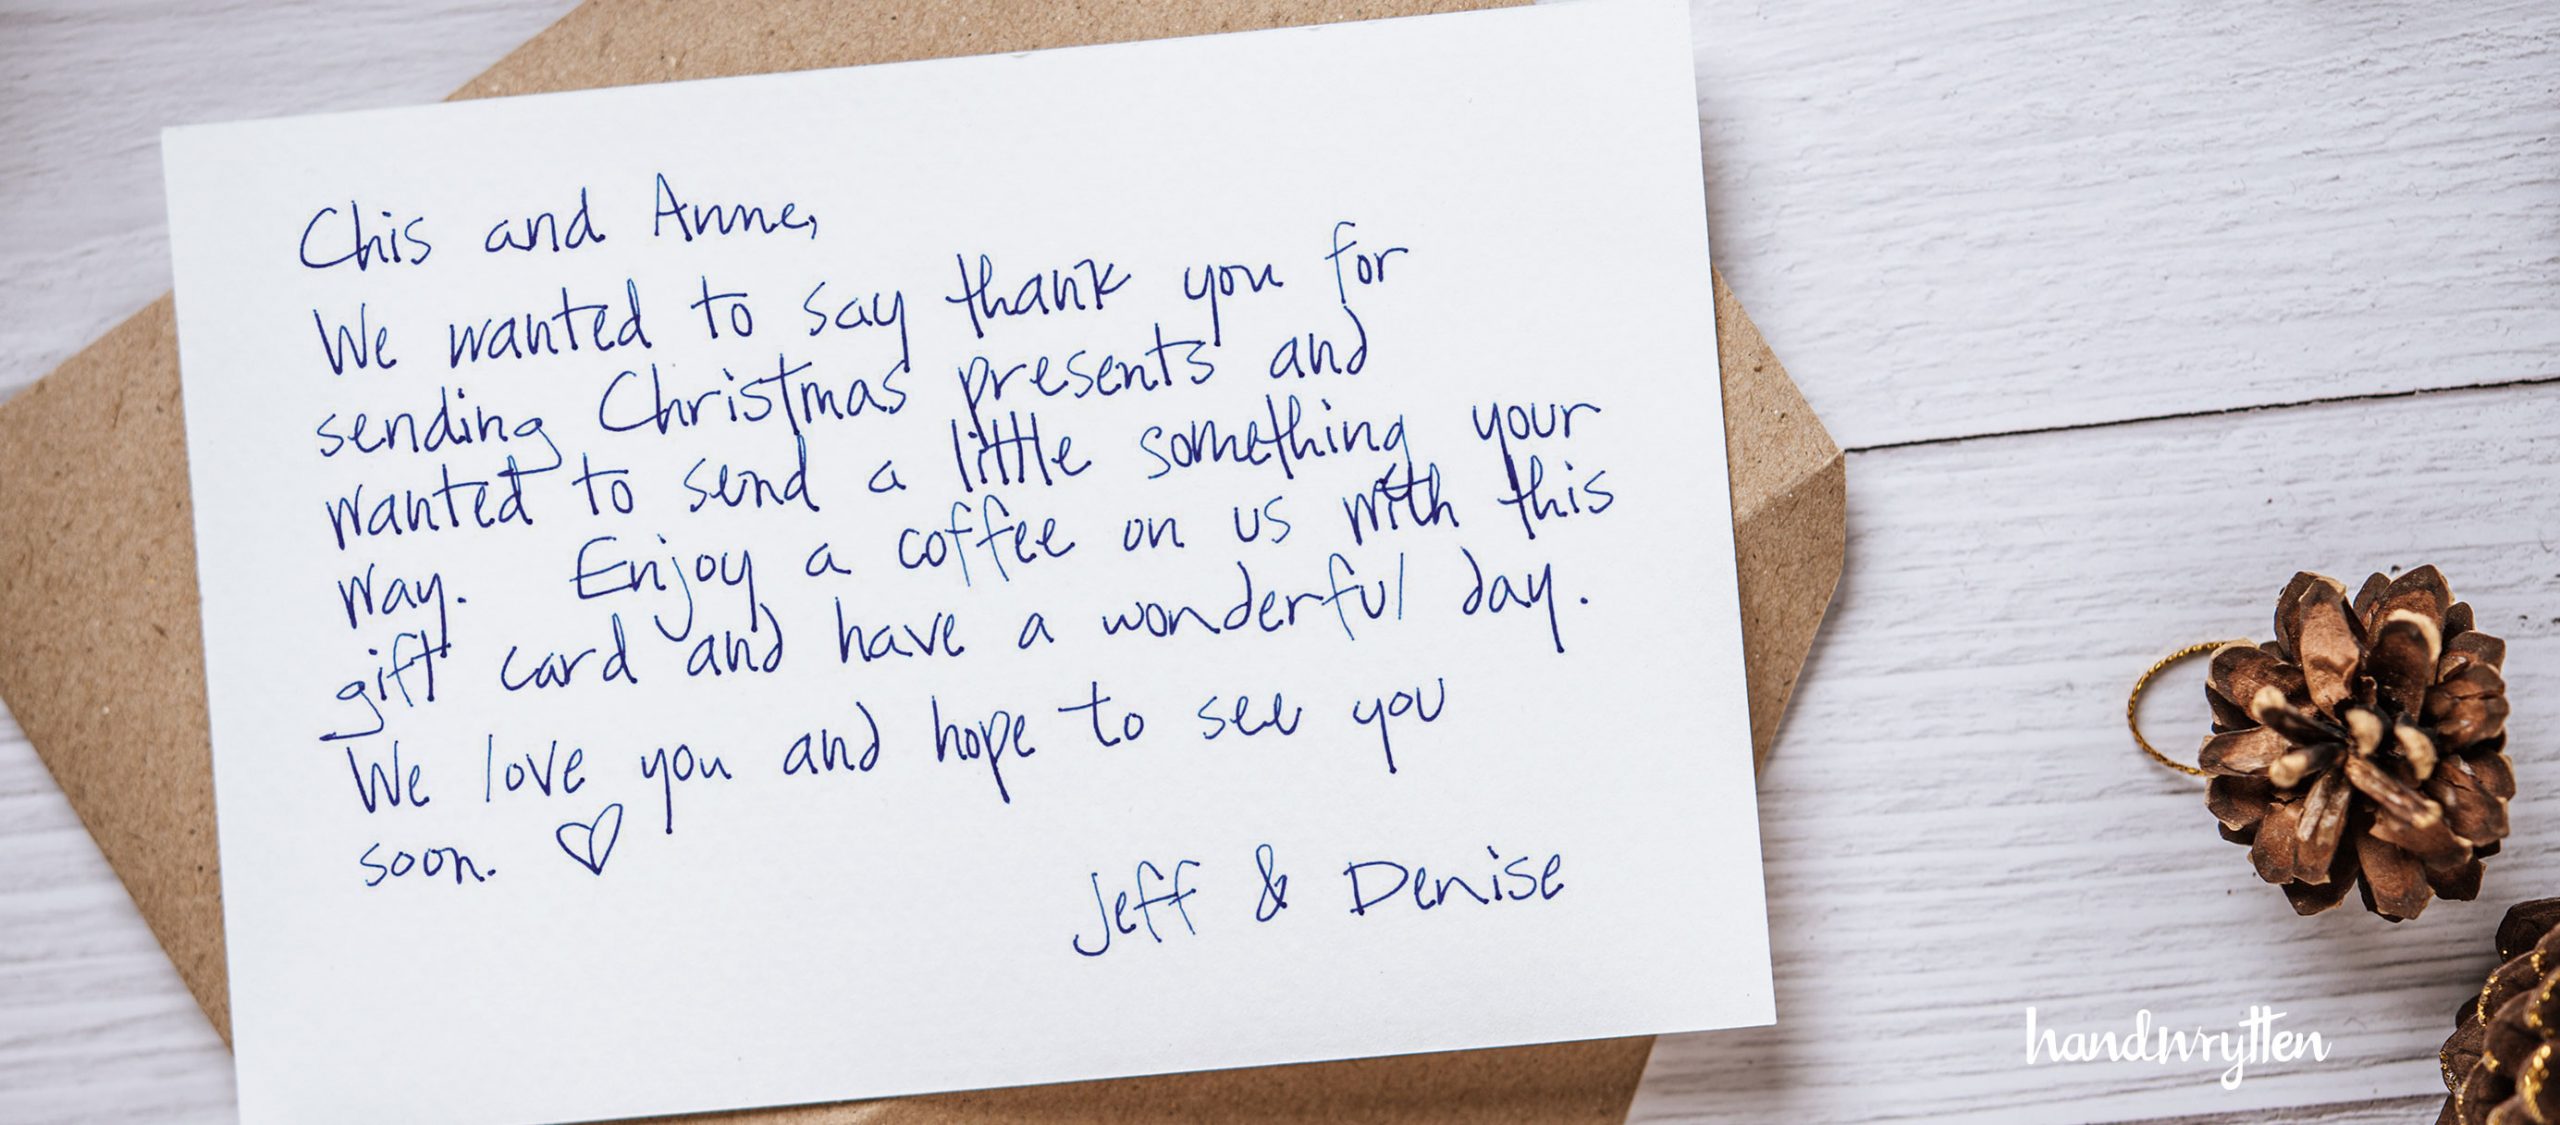 Chis and Anne,
We wanted to say thank you for
sending Christmas presents and
wanted to send a little something your
way. Enjoy a coffee on us with this
gift card and have a wonderful day.
We love you and hope to see you
soon. ♡
Jeff & Denise
handwrytten